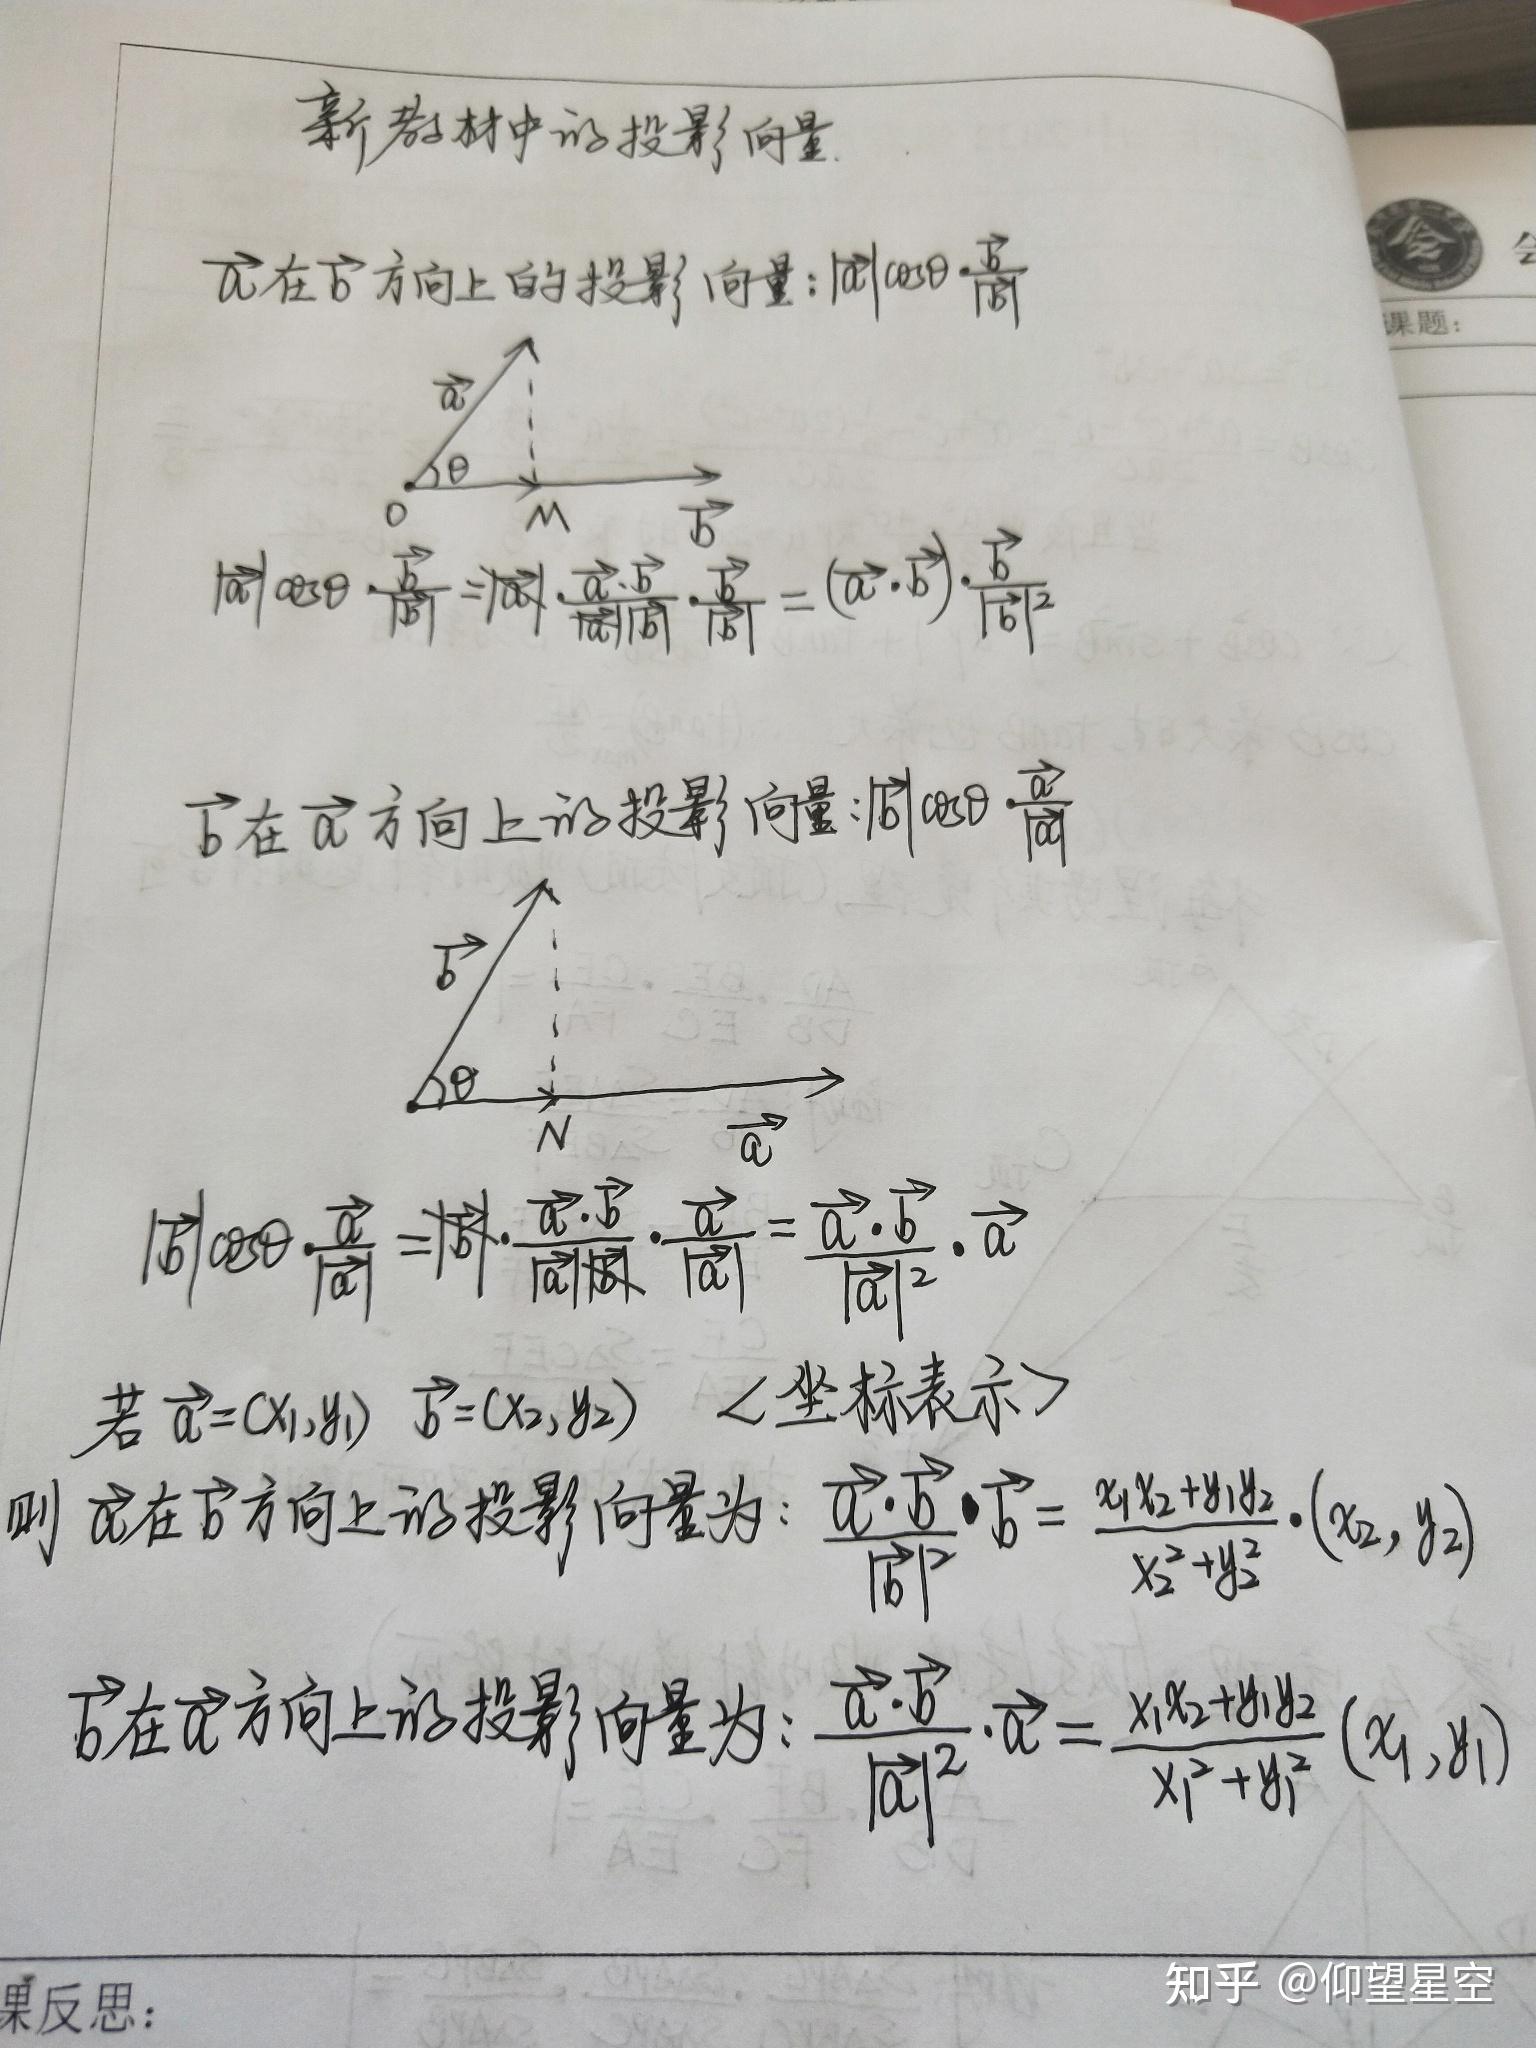 新教材中的投影向量.
a⃗在b⃗方向上的投影向量:|a⃗|cosθ·b⃗/|b⃗|
a⃗
θ
O
M
b⃗
|a⃗|cosθ·b⃗/|b⃗|=|a⃗|·(a⃗·b⃗)/(|a⃗||b⃗|)·b⃗/|b⃗|=(a⃗·b⃗)·b⃗/|b⃗|²
b⃗在a⃗方向上的投影向量:|b⃗|cosθ·a⃗/|a⃗|
b⃗
θ
N
a⃗
|b⃗|cosθ·a⃗/|a⃗|=|b⃗|·(a⃗·b⃗)/(|a⃗||b⃗|)·a⃗/|a⃗|=(a⃗·b⃗)/|a⃗|²·a⃗
若a⃗=(x₁,y₁) b⃗=(x₂,y₂) <坐标表示>
则a⃗在b⃗方向上的投影向量为:(a⃗·b⃗)/|b⃗|²·b⃗=(x₁x₂+y₁y₂)/(x₂²+y₂²)·(x₂,y₂)
b⃗在a⃗方向上的投影向量为:(a⃗·b⃗)/|a⃗|²·a⃗=(x₁x₂+y₁y₂)/(x₁²+y₁²)(x₁,y₁)
课反思:
课题:
知乎 @仰望星空